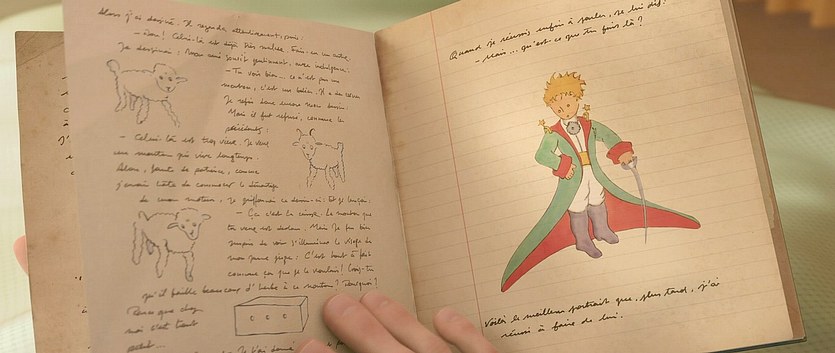 Alors j'ai dessiné. Il regarda attentivement, puis:
- Non! Celui-là est déjà très malade. Fais-en un autre.
Je dessinai; Mon ami sourit gentiment, avec indulgence:
- Tu vois bien... ce n'est pas un
mouton, c'est un bélier. Il a des cornes
Je refis donc encore mon dessin:
Mais il fut refusé, comme les
précédents:
- Celui-là est trop vieux. Je veux
un mouton qui vive longtemps.
Alors, faute de patience, comme
j'avais hâte de commencer le démontage
de mon moteur, je griffonnai ce dessin-ci: Et je lançai:
- Ça c'est la caisse. Le mouton que
tu veux est dedans. Mais je fus bien
surpris de voir s'illuminer le visage de
mon jeune juge: C'est tout à fait
comme ça que je le voulais! Crois-tu
qu'il faille beaucoup d'herbe à ce mouton? Pourquoi?
Parce que chez
moi c'est tout
petit...
Je t'ai donné
Quand je réussis enfin à parler, je lui dis:
- Mais... qu'est-ce que tu fais là?
Voilà le meilleur portrait que, plus tard, j'ai
réussi à faire de lui.